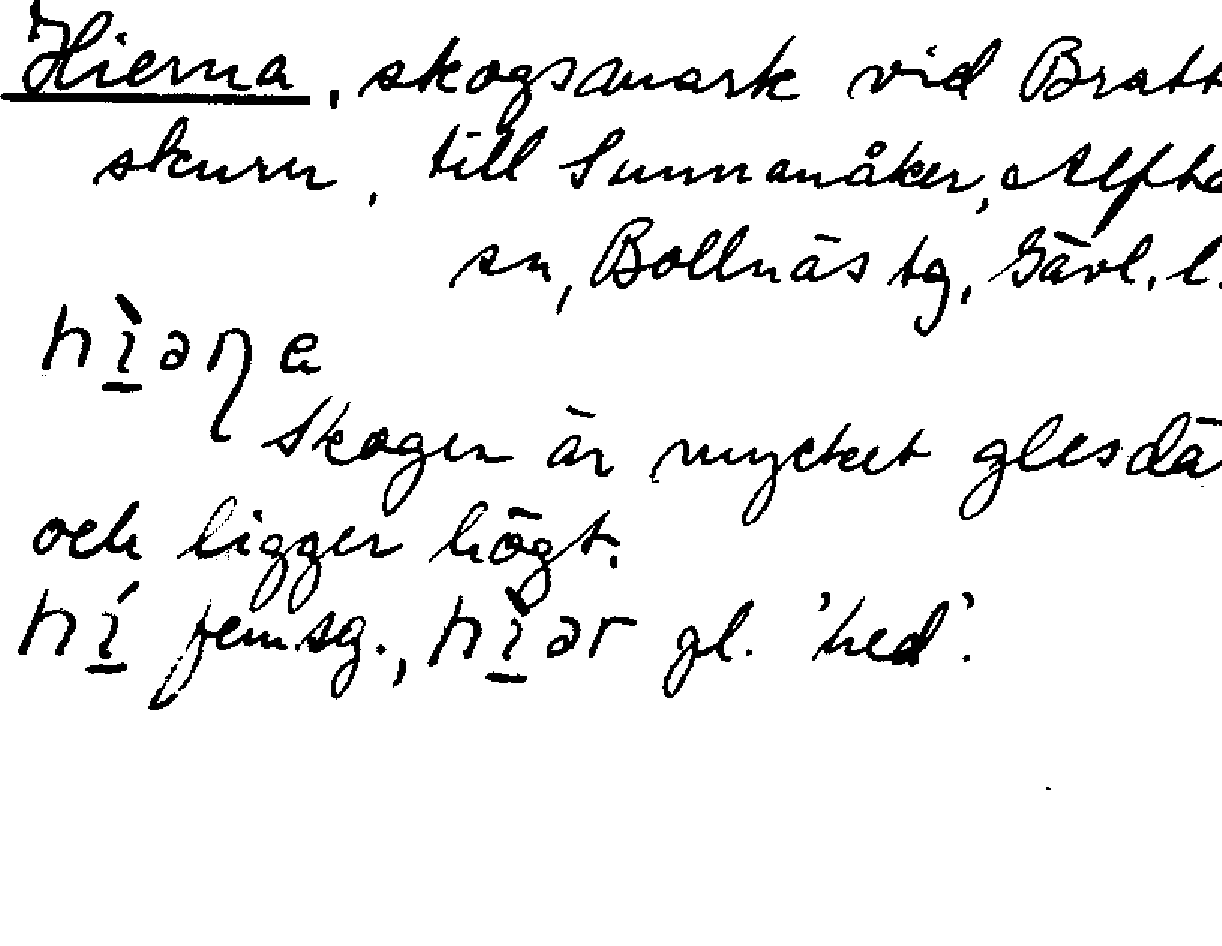 Hierna, skogsmark vid Bratt
skuru, till Sunnanåker, Alfta
sn, Bollnäs tg, Gävl. l.
hìəṇa
Skogen är mycket gles dä
och ligger högt.
hí fem. sg., hìər pl. 'hed'.